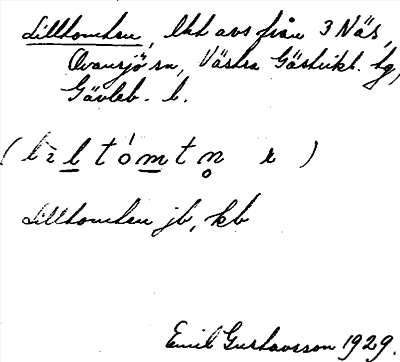 Lilltomten, lht avs från 3 Näs,
Ovansjö sn, Västra Gästrikl. tg,
Gävleb. l.
Lilltomten jb, kb
Emil Gustavsson 1929.